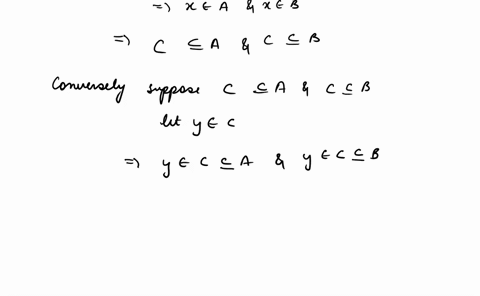 ⇒ x ∈ A & x ∈ B
⇒ C ⊆ A & C ⊆ B
Conversely suppose C ⊆ A & C ⊆ B
let y ∈ C
⇒ y ∈ C ⊆ A & y ∈ C ⊆ B